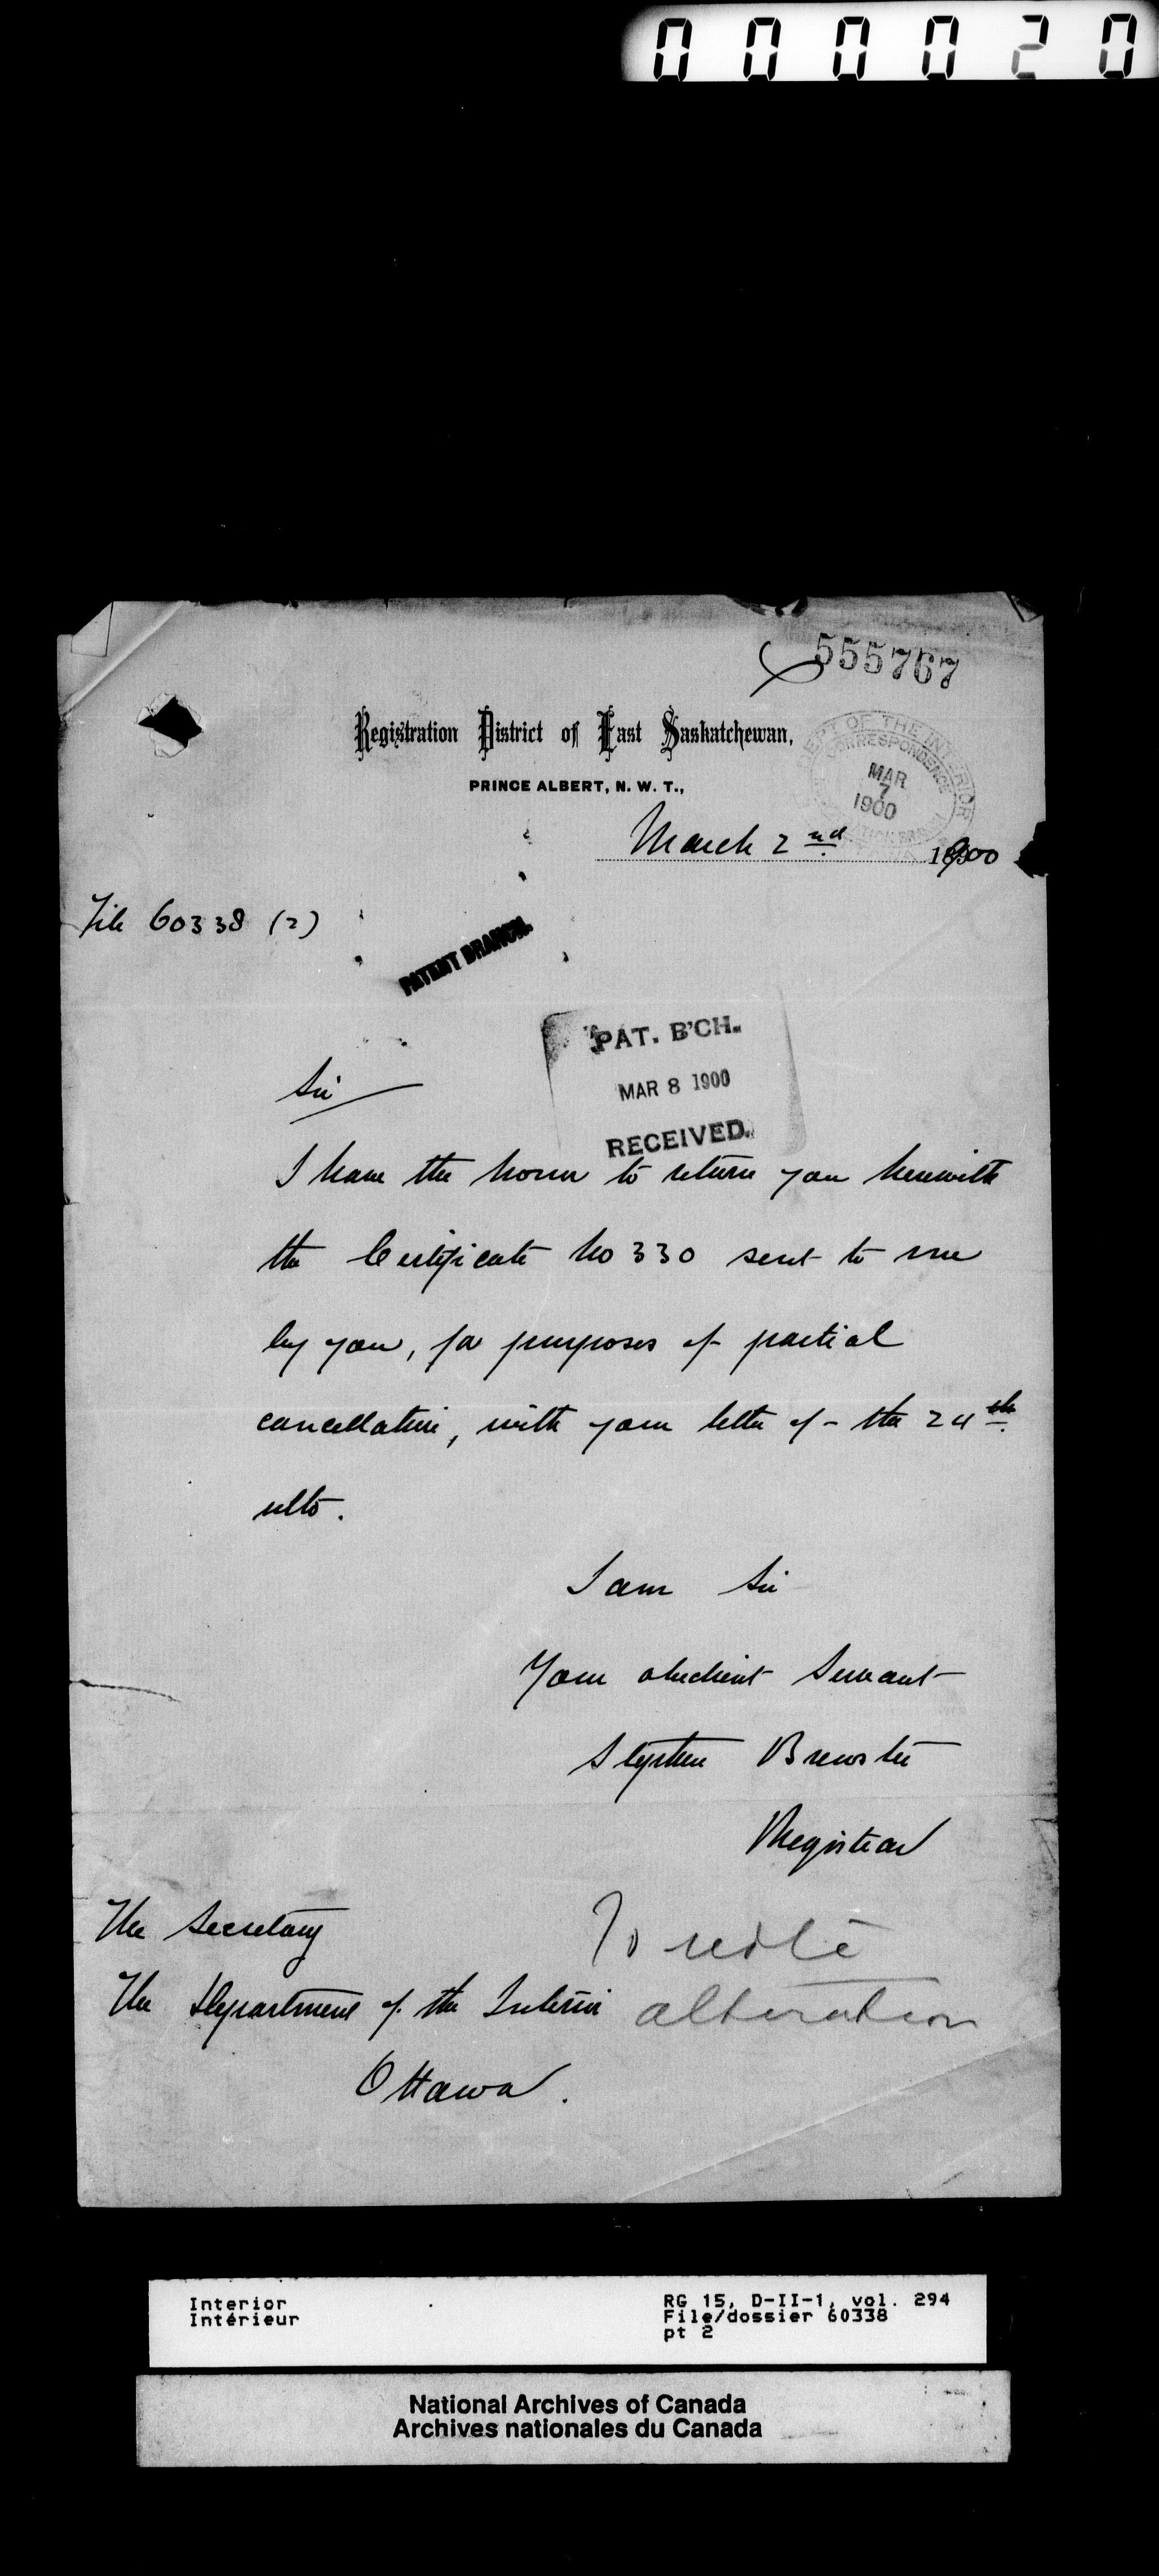 000020
555767
Registration District of East Saskatchewan,
PRINCE ALBERT, N. W. T.,
DEPT OF THE INTERIOR
CORRESPONDENCE
MAR
7
1900
March 2nd 1900
File 60338 (2)
PATENT BRANCH.
PAT. B'CH.
MAR 8 1900
RECEIVED.
Sir
I have the honour to return you herewith
the Certificate No 330 sent to me
by you, for purposes of partial
cancellation, with your letter of the 24th
ulto.
I am Sir
Your obedient Servant
Stephen Brewster
Registrar
The Secretary
The Department of the Interior
Ottawa.
To note
alteration
Interior
Intérieur
RG 15, D-II-1, vol. 294
File/dossier 60338
pt 2
National Archives of Canada
Archives nationales du Canada